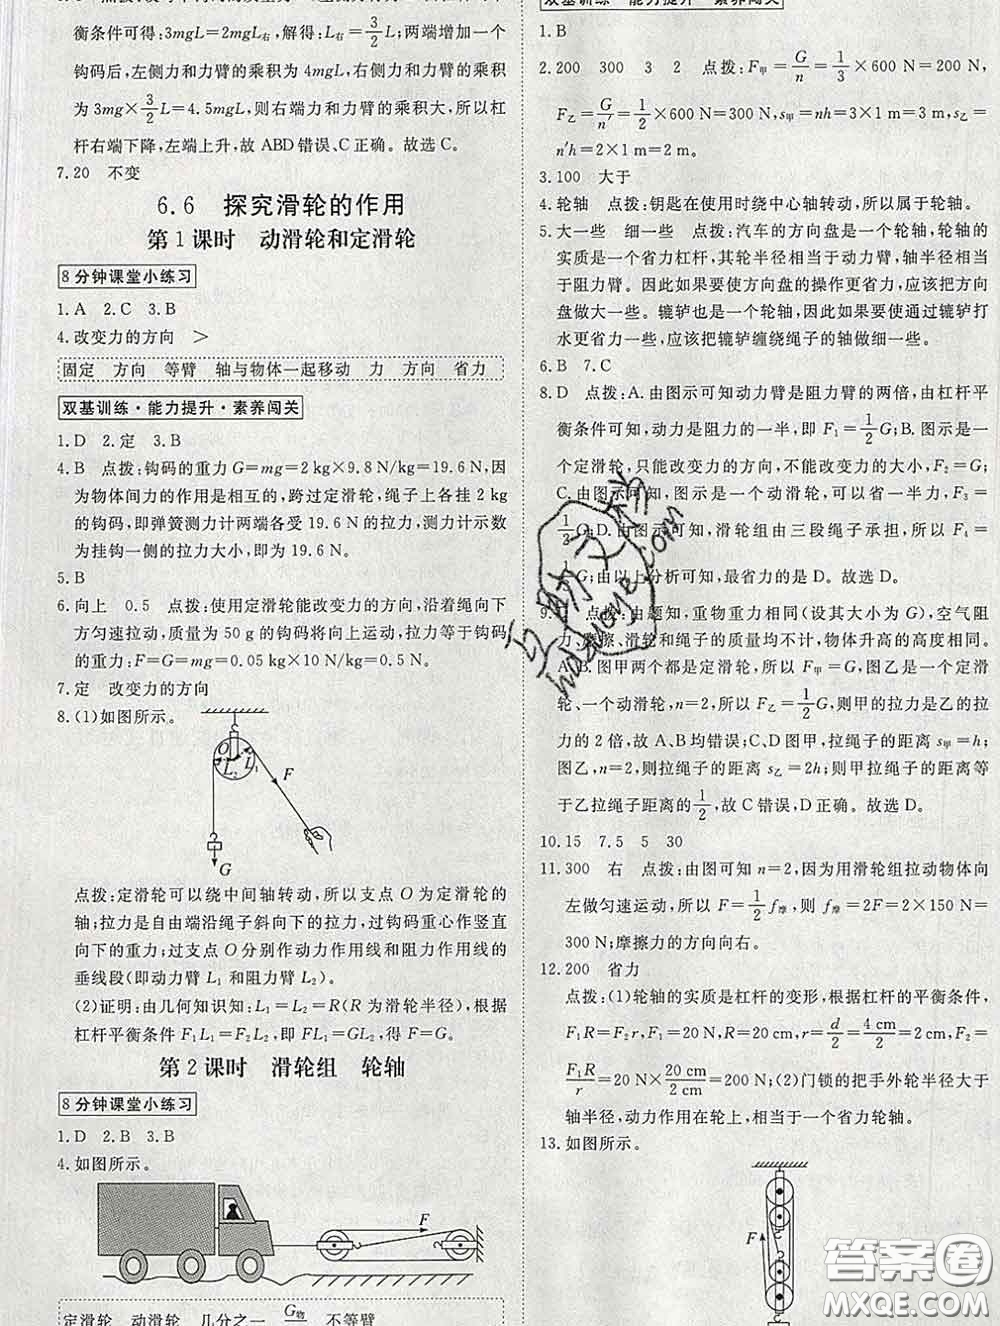 衡条件可得:3mgL=2mgL右,解得:L右=3/2 L;两端增加一个
钩码后,左侧力和力臂的乘积为4mgL,右侧力和力臂的乘积
为3mg×3/2 L=4.5mgL,则右端力和力臂的乘积大,所以杠
杆右端下降,左端上升,故ABD错误、C正确。故选C。
7.20 不变
6.6 探究滑轮的作用
第1课时 动滑轮和定滑轮
8分钟课堂小练习
1.A 2.C 3.B
4.改变力的方向 >
固定 方向 等臂 轴与物体一起移动 力 方向 省力
双基训练·能力提升·素养闯关
1.D 2.定 3.B
4.B 点拨:钩码的重力G=mg=2 kg×9.8 N/kg=19.6 N,因
为物体间力的作用是相互的,跨过定滑轮,绳子上各挂2 kg
的钩码,即弹簧测力计两端各受19.6 N的拉力,测力计示数
为挂钩一侧的拉力大小,即为19.6 N。
5.B
6.向上 0.5 点拨:使用定滑轮能改变力的方向,沿着绳向下
方匀速拉动,质量为50 g的钩码将向上运动,拉力等于钩码
的重力:F=G=mg=0.05 kg×10 N/kg=0.5 N。
7.定 改变力的方向
8.(1)如图所示。
O
L2
L1
F
G
点拨:定滑轮可以绕中间轴转动,所以支点O为定滑轮的
轴;拉力是自由端沿绳子斜向下的拉力,过钩码重心作竖直
向下的重力;过支点O分别作动力作用线和阻力作用线的
垂线段(即动力臂L1和阻力臂L2)。
(2)证明:由几何知识知:L1=L2=R(R为滑轮半径),根据
杠杆平衡条件F1L1=F2L2,即FL1=GL2,得F=G。
第2课时 滑轮组 轮轴
8分钟课堂小练习
1.D 2.B 3.B
4.如图所示。
F
定滑轮 动滑轮 几分之一 G物 不等臂
双基训练·能力提升·素养闯关
1.B
2.200 300 3 2 点拨:F甲=G/n=1/3×600 N=200 N,
F乙=G/n′=1/2×600 N=300 N,s甲=nh=3×1 m=3 m,s乙=
n′h=2×1 m=2 m。
3.100 大于
4.轮轴 点拨:钥匙在使用时绕中心轴转动,所以属于轮轴。
5.大一些 细一些 点拨:汽车的方向盘是一个轮轴,轮轴的
实质是一个省力杠杆,其轮半径相当于动力臂,轴半径相当
于阻力臂。因此如果要使方向盘的操作更省力,应该把方向
盘做大一些。辘轳也是一个轮轴,因此如果要使用辘轳打
水更省力一些,应该把辘轳缠绕绳子的轴做细一些。
6.B 7.C
8.D 点拨:A.由图示可知动力臂是阻力臂的两倍,由杠杆平
衡条件可知,动力是阻力的一半,即F1=1/2 G;B.图示是一
个定滑轮,只能改变力的方向,不能改变力的大小,F2=G;
C.由图示可知,图示是一个动滑轮,可以省一半力,F3=
1/2 G;D.由图示可知,滑轮组由三段绳子承担,所以F4=
G;由以上分析可知,最省力的是D。故选D。
9. 点拨:由题知,重物重力相同(设其大小为G),空气阻
力、摩擦、滑轮和绳子的质量均不计,物体升高的高度相同。
A、B.图甲两个都是定滑轮,所以F甲=G,图乙是一个定滑
轮、一个动滑轮,n=2,所以F乙=1/2 G,则甲的拉力是乙的拉
力的2倍,故A、B均错误;C、D图甲,拉绳子的距离s甲=h;
图乙,n=2,则拉绳子的距离s乙=2h;则甲拉绳子的距离等
于乙拉绳子距离的1/2,故C错误,D正确。故选D。
10.15 7.5 5 30
11.300 右 点拨:由图可知n=2,因为用滑轮组拉动物体向
左做匀速运动,所以F=1/2 f摩,则f摩=2F=2×150 N=
300 N;摩擦力的方向向右。
12.200 省力
点拨:(1)轮轴的实质是杠杆的变形,根据杠杆的平衡条件,
F1R=F2r,F1=20 N,R=20 cm,r=d/2=4 cm/2=2 cm,F2=
F1R/r=20 N×20 cm/2 cm=200 N;(2)门锁的把手外轮半径大于
轴半径,动力作用在轮上,相当于一个省力轮轴。
13.如图所示。
F
答案圈
MXQE.COM